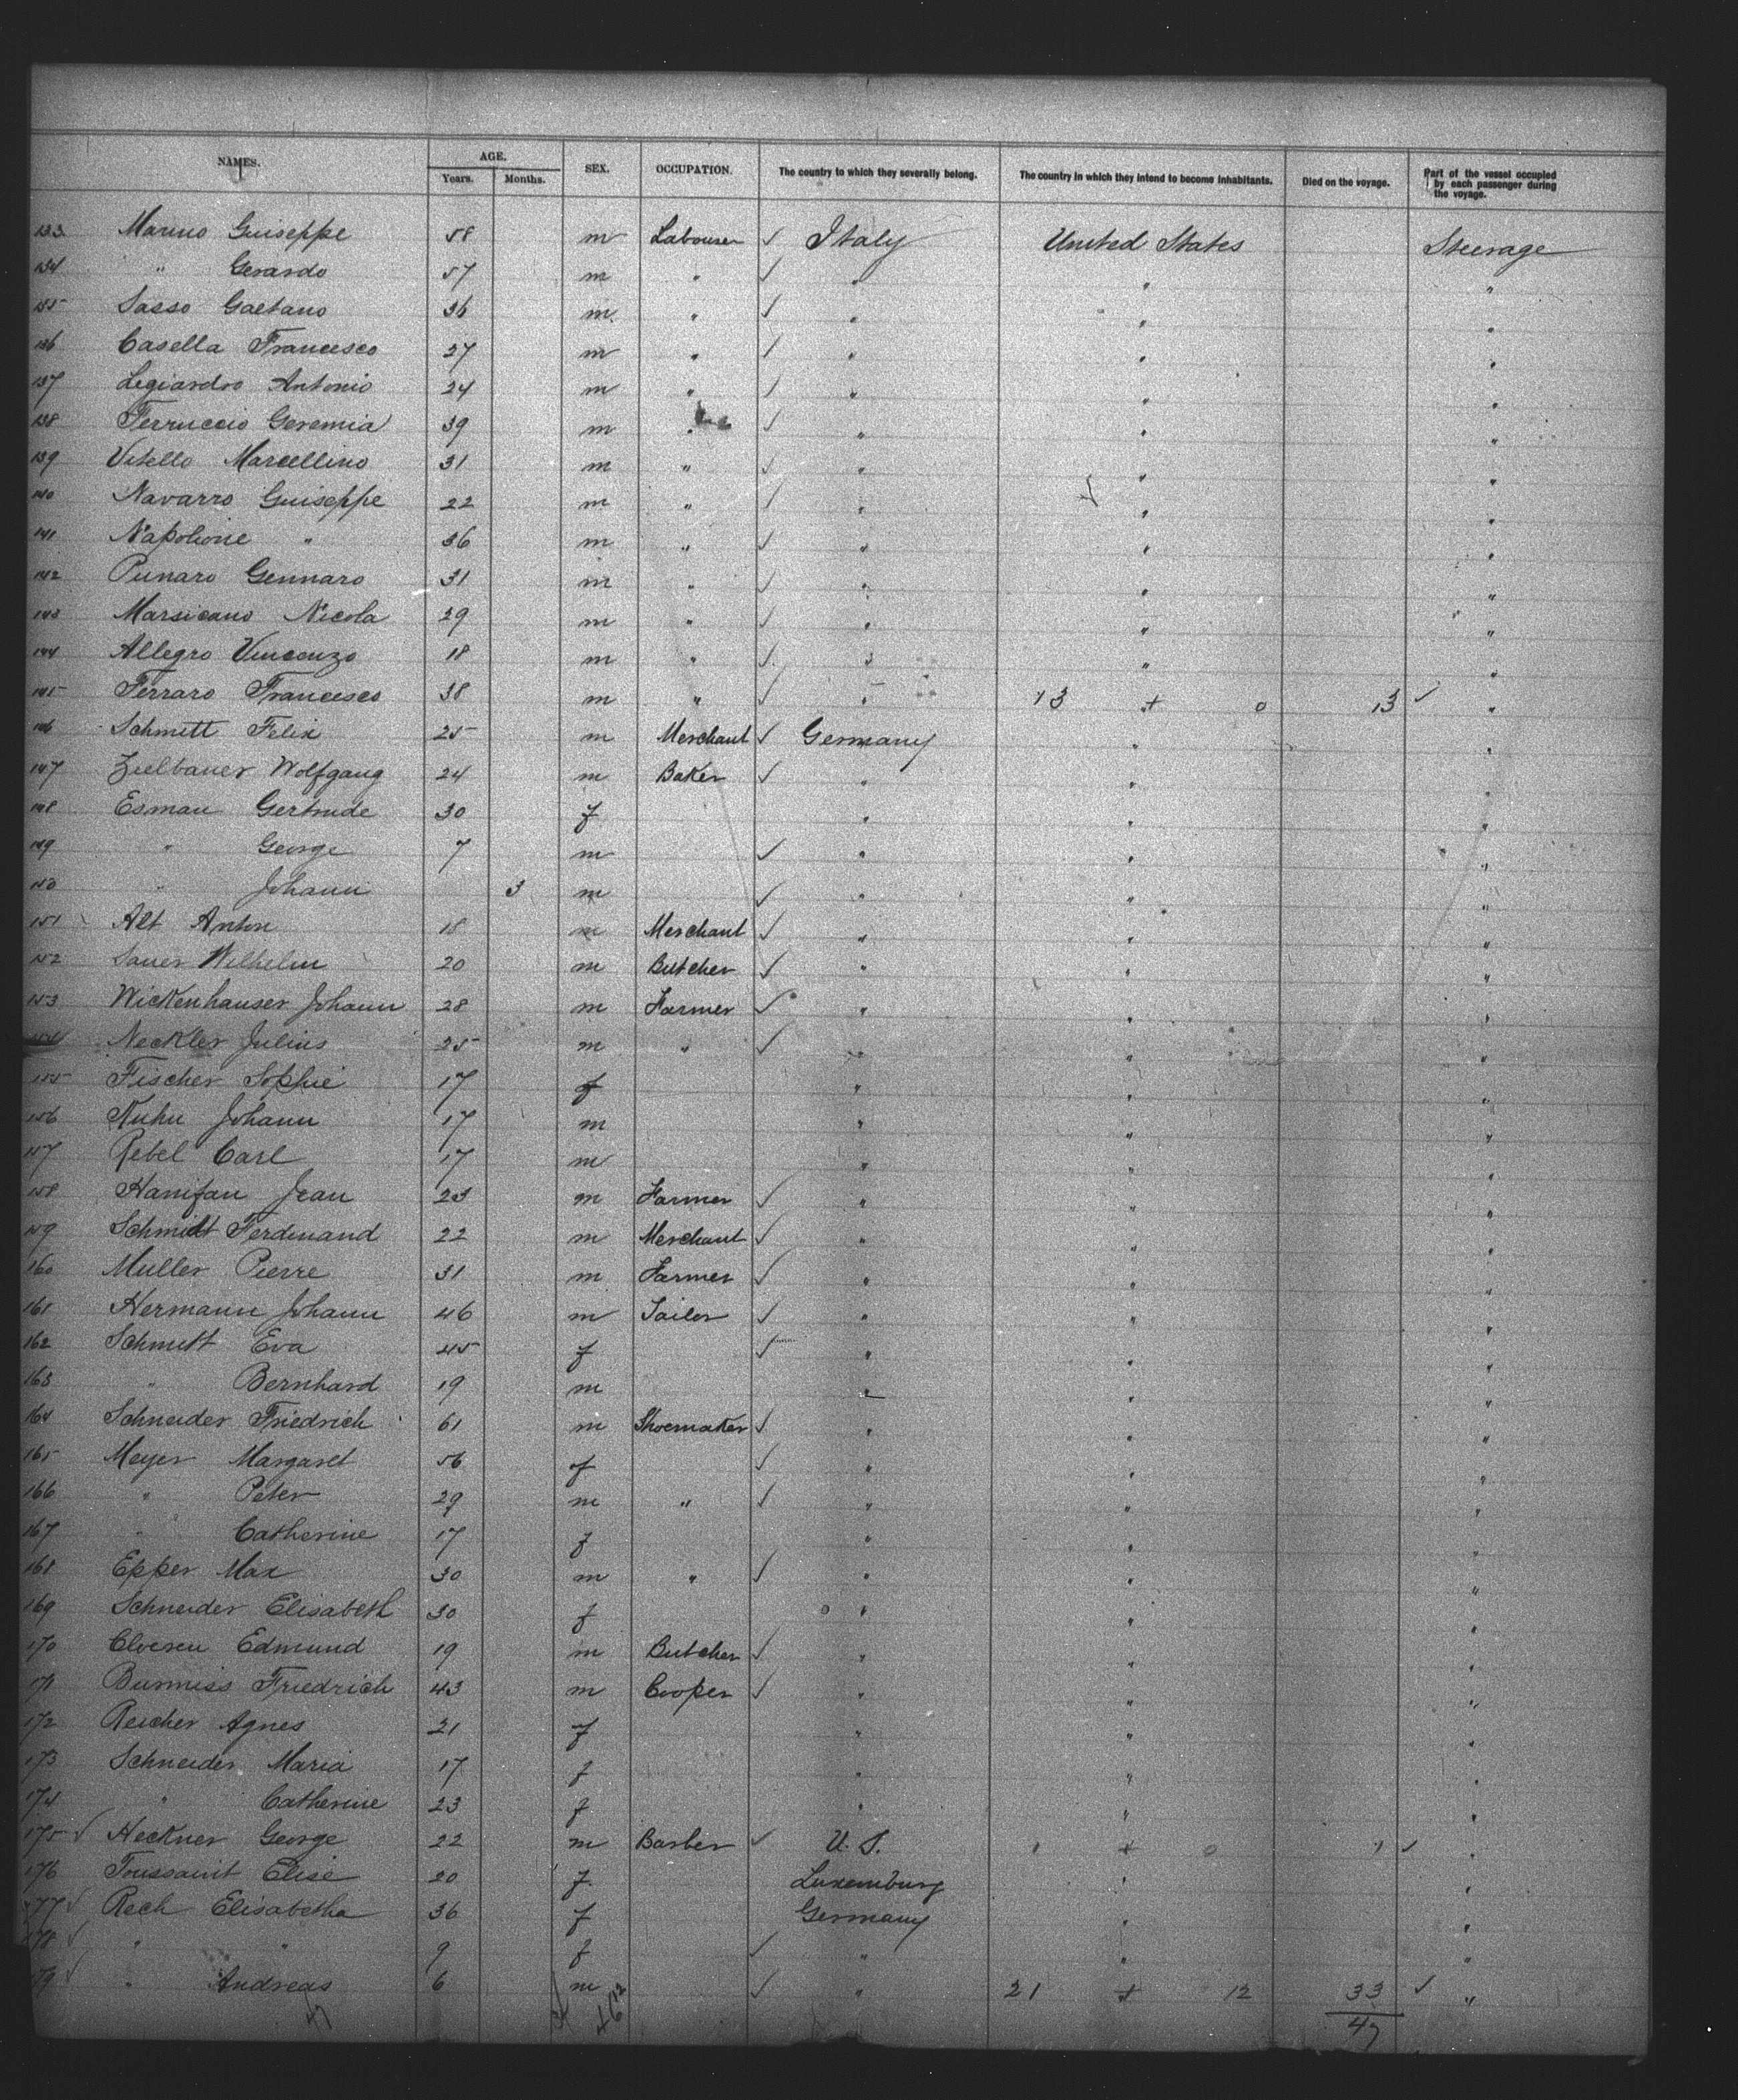 NAMES. AGE. Years. Months. SEX. OCCUPATION. The country to which they severally belong. The country in which they intend to become inhabitants. Died on the voyage. Part of the vessel occupied by each passenger during the voyage.
133 Marino Guiseppe 58 m Labourer ✓ Italy United States Steerage
134 " Gerardo 57 m " ✓ " " "
135 Sasso Gaetano 36 m " ✓ " " "
136 Casella Francesco 27 m " ✓ " " "
137 Legiardro Antonio 24 m " ✓ " " "
138 Ferruccio Geremia 39 m " ✓ " " "
139 Vitello Marcellino 31 m " ✓ " " "
140 Navarro Guiseppe 22 m " ✓ " " "
141 Napolione " 36 m " ✓ " " "
142 Punaro Gennaro 31 m " ✓ " " "
143 Marsicano Nicola 29 m " ✓ " " "
144 Allegro Vincenzo 18 m " ✓ " " "
145 Ferraro Francesco 38 m " ✓ " 13 + 0 13 ✓ "
146 Schmitt Felix 25 m Merchant ✓ Germany " "
147 Zielbauer Wolfgang 24 m Baker ✓ " " "
148 Esman Gertrude 30 f " " "
149 " George 7 m ✓ " " "
150 " Johann 3 m ✓ " " "
151 Alt Anton 18 m Merchant ✓ " " "
152 Sauer Wilhelm 20 m Butcher ✓ " " "
153 Wickenhauser Johann 28 m Farmer ✓ " " "
154 Neckler Julius 25 m " ✓ " " "
155 Fischer Sophie 17 f " " "
156 Kuhn Johann 17 m " " "
157 Rebel Carl 17 m " " "
158 Hanifan Jean 23 m Farmer ✓ " " "
159 Schmidt Ferdinand 22 m Merchant ✓ " " "
160 Muller Pierre 31 m Farmer ✓ " " "
161 Hermann Johann 46 m Tailor ✓ " " "
162 Schmitt Eva 45 f ✓ " " "
163 " Bernhard 19 m " " "
164 Schneider Friedrich 61 m Shoemaker ✓ " " "
165 Meyer Margaret 56 f ✓ " " "
166 " Peter 29 m " ✓ " " "
167 " Catherine 17 f " " "
168 Epper Max 30 m " ✓ " " "
169 Schneider Elisabeth 30 f " " "
170 Cloeren Edmund 19 m Butcher ✓ " " "
171 Burmiss Friedrich 43 m Cooper ✓ " " "
172 Reicher Agnes 21 f " " "
173 Schneider Maria 17 f " " "
174 " Catherine 23 f " " "
175 ✓ Heckner George 22 m Barber ✓ U. S. 1 + 0 1 ✓ "
176 Toussaint Elise 20 f Luxemburg " "
177 ✓ Rech Elisabetha 36 f Germany " "
178 ✓ " " 9 f ✓ " " "
179 ✓ " Andreas 6 m ✓ " 21 + 12 33 ✓ "
47